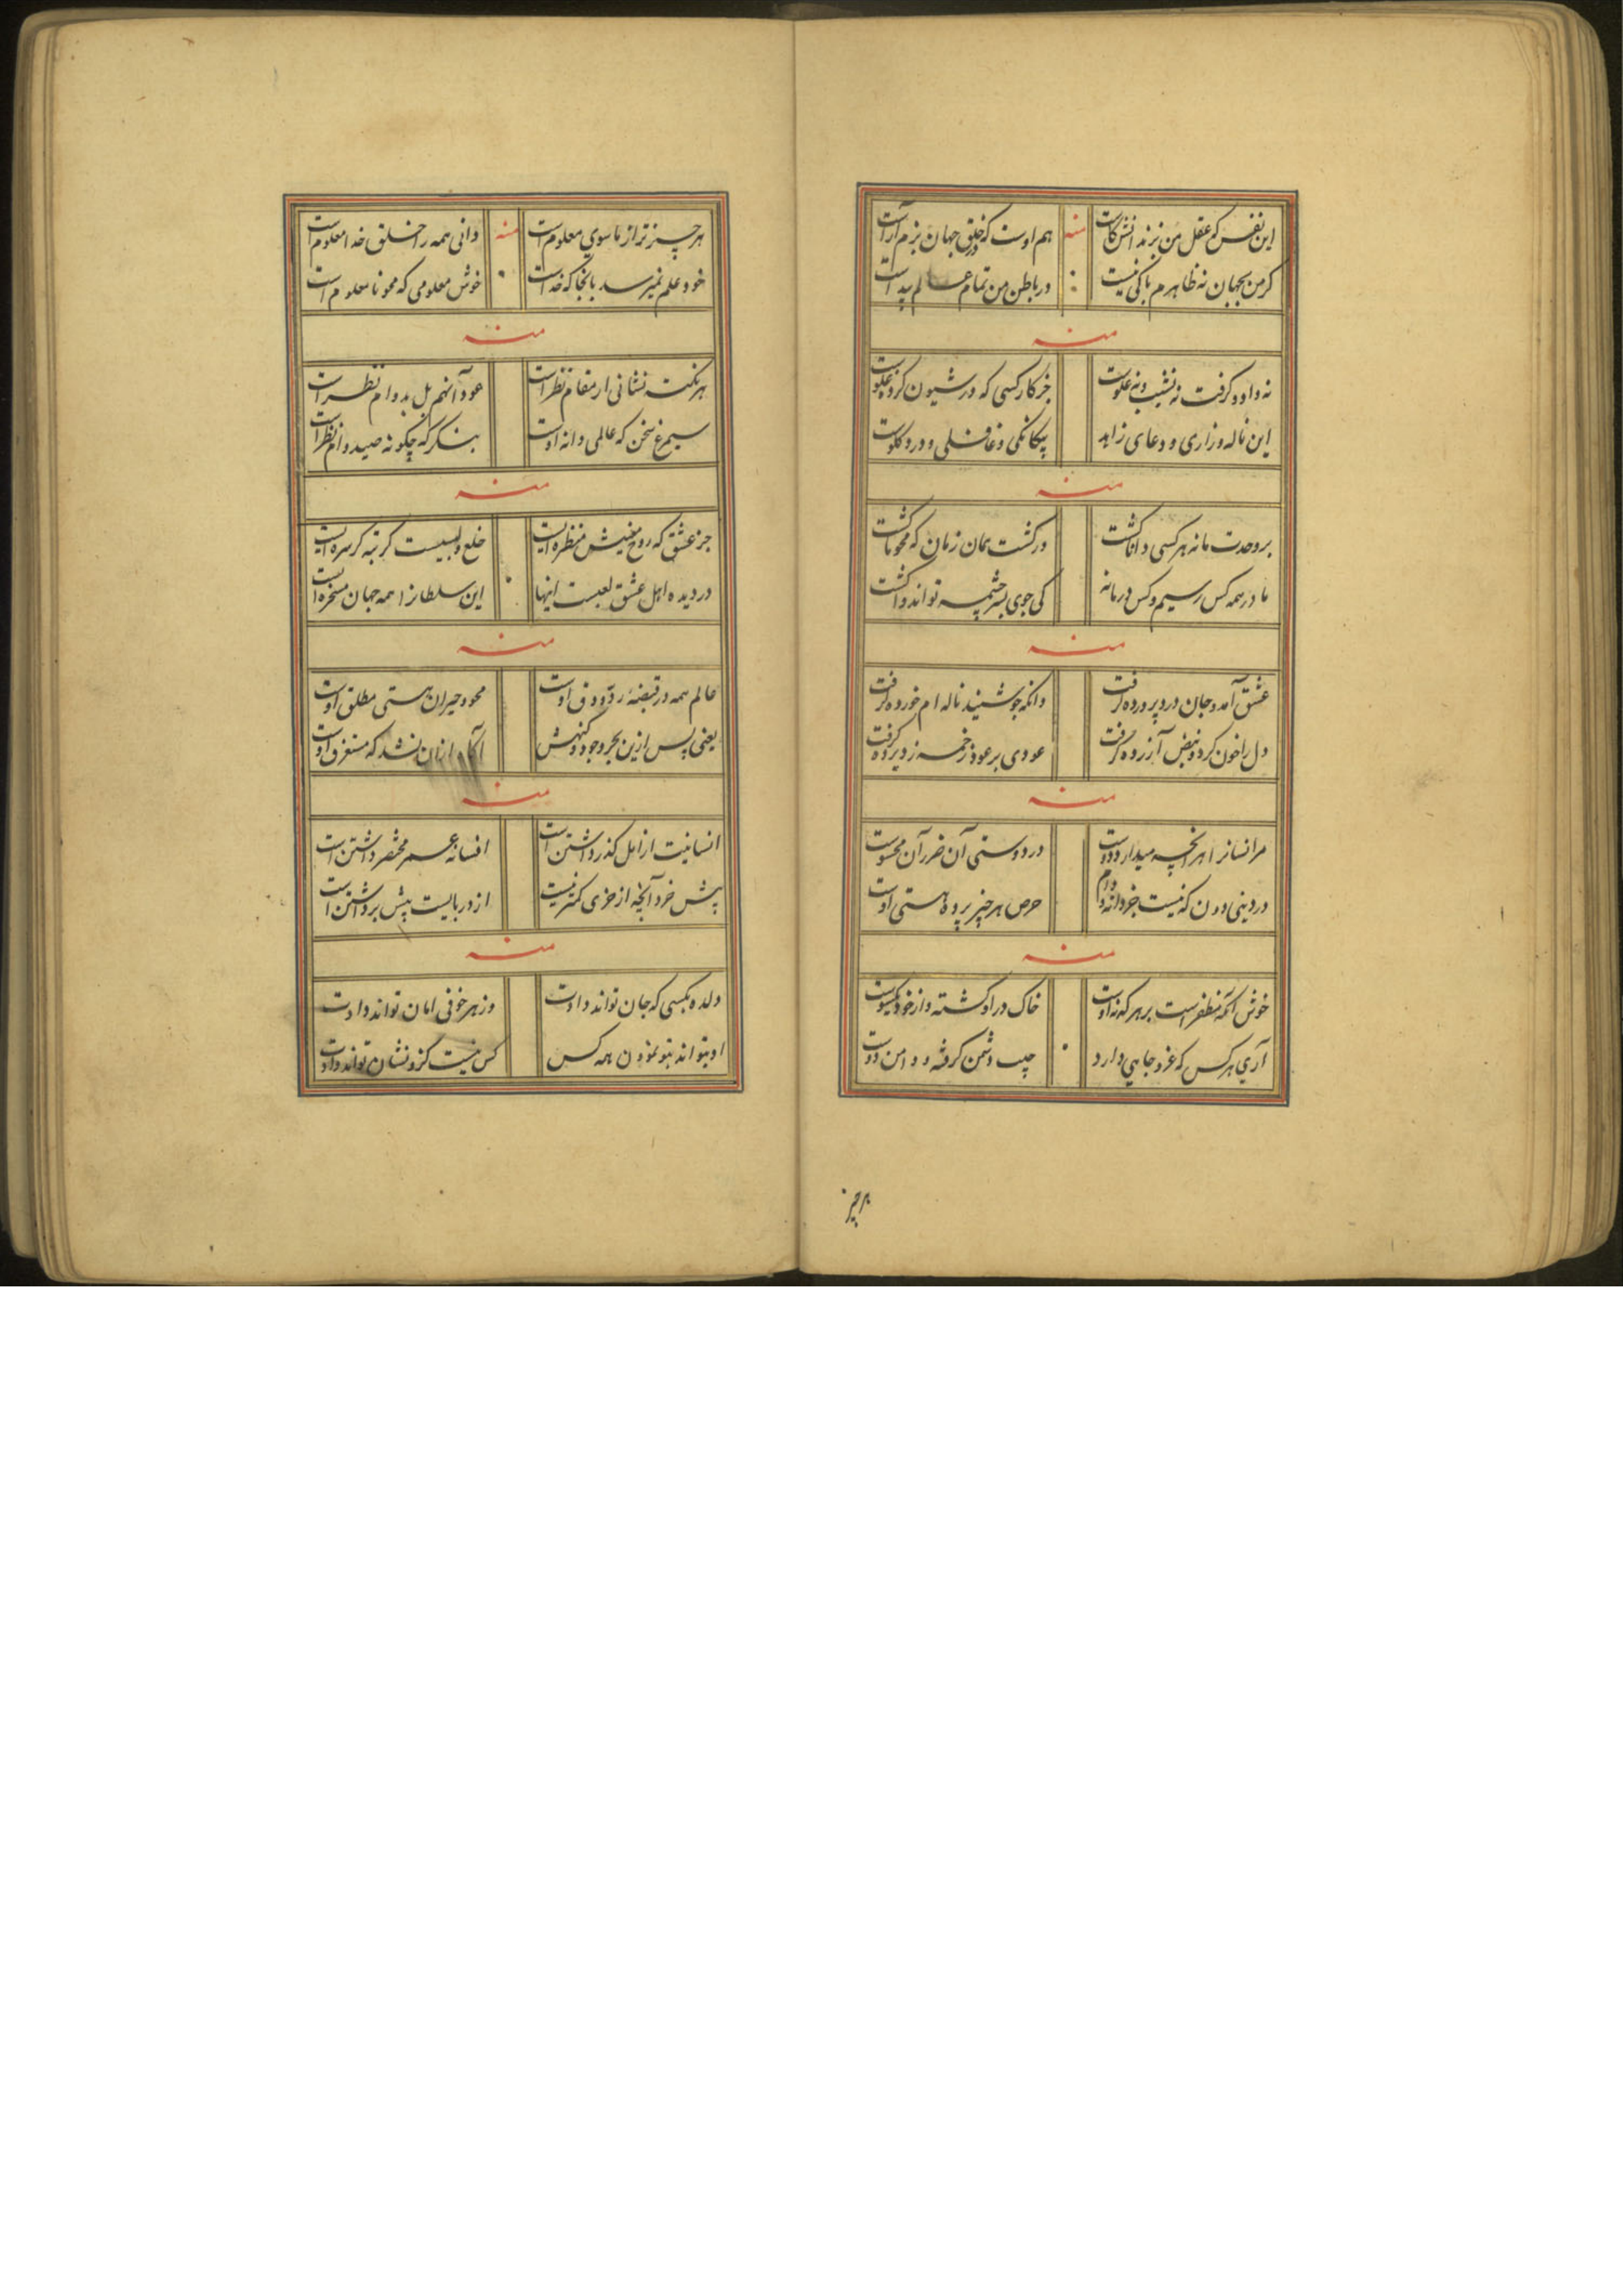 این نفس که عقل من بزند انش کاست منه هم اوست که در خلق جهان بزم آراست
کر من بجهان نه ظاهرم باکی نیست در باطن من تمام عالم پیداست
منه
نه داود کرفت نه نشیب ونه علوست خر کار کسی که در شیون کرده غلوست
این ناله وزاری و دعای زاهد بیکانکی و غافلی و درد کلوست
منه
بر وحدت ما نه هر کسی دانا کشت ور کشت همان زمان که محو ما کشت
ما در همه کس رسیم وکس در ما نه کی جوی بسر چشمه تواند وا کشت
منه
عشق آمد و جان درد پرورده کرفت وانکه چو شنید ناله ام خورده کرفت
دل را خون کرد و نبض آزرده کرفت عودی بر عود زخمه زد پرده کرفت
منه
مر انسانرا هر آنچه میدارد دوست در دوستی آن ضرر آن محسوست
در دینی دون که نیست جز دانه و دام حرص هر چیز پرده هستی اوست
منه
خوش آنکه مظفر است بر هر که نه اوست خاک در او کشته و از خود یکسوست
آری هر کس که عز و جاهی دارد جیب دشمن کرفته و دامن دوست
هر چیز
هر چیز ترا ز ما سوی معلوم است منه دانی همه را خلق خدا معلوم است
خود علم نمیرسد بانجا که خداست خوش معلومی که محو نا معلوم است
منه
هر نکته نشانی از مقام نظر است خود آنهم بل بدوام نظر است
سیمرغ سخن که عالمی دانه اوست بنکر که چکونه صید دام نظر است
منه
جز عشق که روح معنیش منظره ایست خلع و لبسیست کر نه کر مسره ایست
در دیده اهل عشق لعبست اینها این سلطانرا همه جهان مسخره ایست
منه
عالم همه در قبضه رد و دق اوست محو و حیران هستی مطلق اوست
یعنی پس ازین بحر وجود و کنهش آکاه ازان نشد که مستغرق اوست
منه
انسانیت از امل کذر داشتن است افسانه عمر مختصر داشتن است
پیش خرد آنچه از خری کمتر نیست از در بایست پیش برداشتن است
منه
دل ده بکسی که جان تواند دادت وز هر خوفی امان تواند دادت
او بتواند بتو نمودن همه کس کس نیست کزو نشان تواند دادت